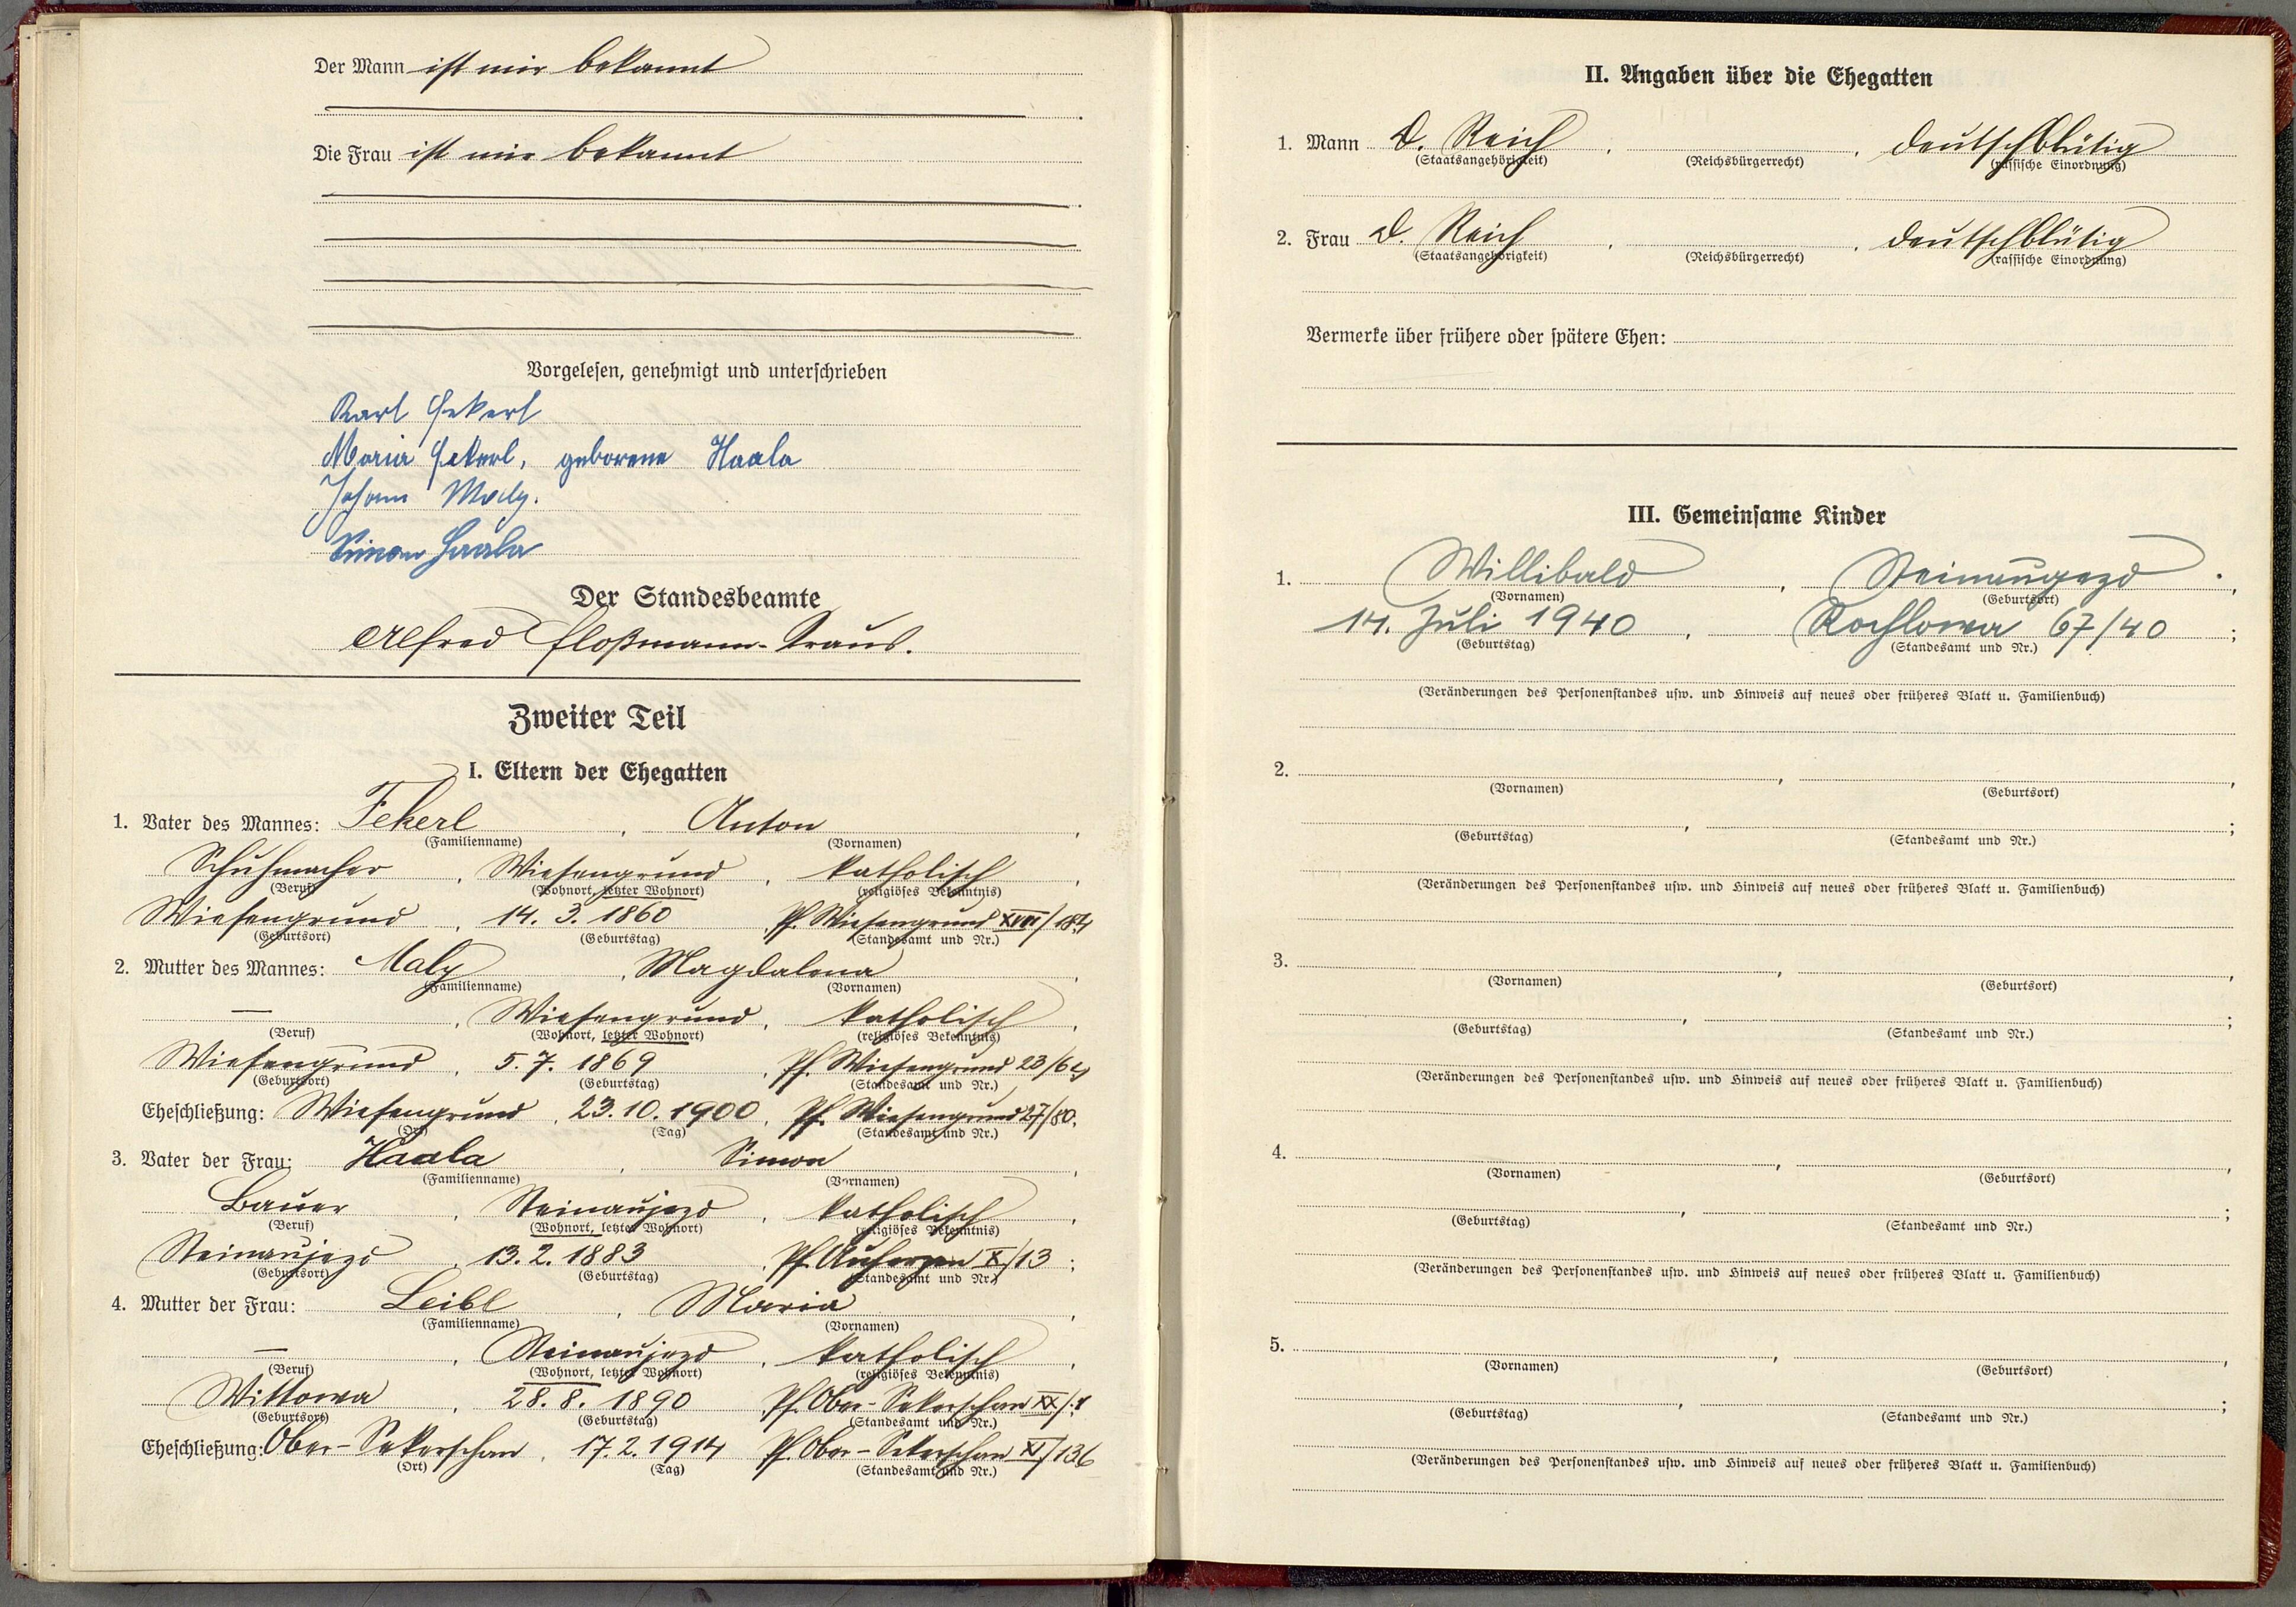 Der Mann ist mir bekannt
Die Frau ist mir bekannt
Vorgelesen, genehmigt und unterschrieben
Karl Fekerl
Maria Fekerl, geborene Haala
Johann Maly.
Simon Haala
Der Standesbeamte
Alfred Floßmann-Kraus.
Zweiter Teil
I. Eltern der Ehegatten
1. Vater des Mannes: Fekerl, Anton,
(Familienname) (Vornamen)
Schuhmacher, Wiesengrund, katholisch,
(Beruf) (Wohnort, letzter Wohnort) (religiöses Bekenntnis)
Wiesengrund, 14. 3. 1860, Pf. Wiesengrund XVII/184
(Geburtsort) (Geburtstag) (Standesamt und Nr.)
2. Mutter des Mannes: Maly, Magdalena,
(Familienname) (Vornamen)
—, Wiesengrund, katholisch,
(Beruf) (Wohnort, letzter Wohnort) (religiöses Bekenntnis)
Wiesengrund, 5. 7. 1869, Pf. Wiesengrund 23/64
(Geburtsort) (Geburtstag) (Standesamt und Nr.)
Eheschließung: Wiesengrund, 23. 10. 1900, Pf. Wiesengrund 27/80.
(Ort) (Tag) (Standesamt und Nr.)
3. Vater der Frau: Haala, Simon,
(Familienname) (Vornamen)
Bauer, Steinaujezd, katholisch,
(Beruf) (Wohnort, letzter Wohnort) (religiöses Bekenntnis)
Steinaujezd, 13. 2. 1883, Pf. Auherzen X/13;
(Geburtsort) (Geburtstag) (Standesamt und Nr.)
4. Mutter der Frau: Leibl, Maria,
(Familienname) (Vornamen)
—, Steinaujezd, katholisch,
(Beruf) (Wohnort, letzter Wohnort) (religiöses Bekenntnis)
Wittowa, 28. 8. 1890, Pf. Ober-Sekerschan
(Geburtsort) (Geburtstag) (Standesamt und Nr.)
Eheschließung: Ober-Sekerschan, 17. 2. 1914 Pf. Ober-Sekerschan XI/136
(Ort) (Tag) (Standesamt und Nr.)
II. Angaben über die Ehegatten
1. Mann D. Reich, , deutschblütig
(Staatsangehörigkeit) (Reichsbürgerrecht) (rassische Einordnung)
2. Frau D. Reich, , deutschblütig
(Staatsangehörigkeit) (Reichsbürgerrecht) (rassische Einordnung)
Vermerke über frühere oder spätere Ehen:
III. Gemeinsame Kinder
1. Willibald, Steinaugezd,
(Vornamen) (Geburtsort)
14. Juli 1940, Rochlowa 67/40;
(Geburtstag) (Standesamt und Nr.)
(Veränderungen des Personenstandes usw. und Hinweis auf neues oder früheres Blatt u. Familienbuch)
2. , ,
(Vornamen) (Geburtsort)
, ;
(Geburtstag) (Standesamt und Nr.)
(Veränderungen des Personenstandes usw. und Hinweis auf neues oder früheres Blatt u. Familienbuch)
3. , ,
(Vornamen) (Geburtsort)
, ;
(Geburtstag) (Standesamt und Nr.)
(Veränderungen des Personenstandes usw. und Hinweis auf neues oder früheres Blatt u. Familienbuch)
4. , ,
(Vornamen) (Geburtsort)
, ;
(Geburtstag) (Standesamt und Nr.)
(Veränderungen des Personenstandes usw. und Hinweis auf neues oder früheres Blatt u. Familienbuch)
5. , ,
(Vornamen) (Geburtsort)
, ;
(Geburtstag) (Standesamt und Nr.)
(Veränderungen des Personenstandes usw. und Hinweis auf neues oder früheres Blatt u. Familienbuch)